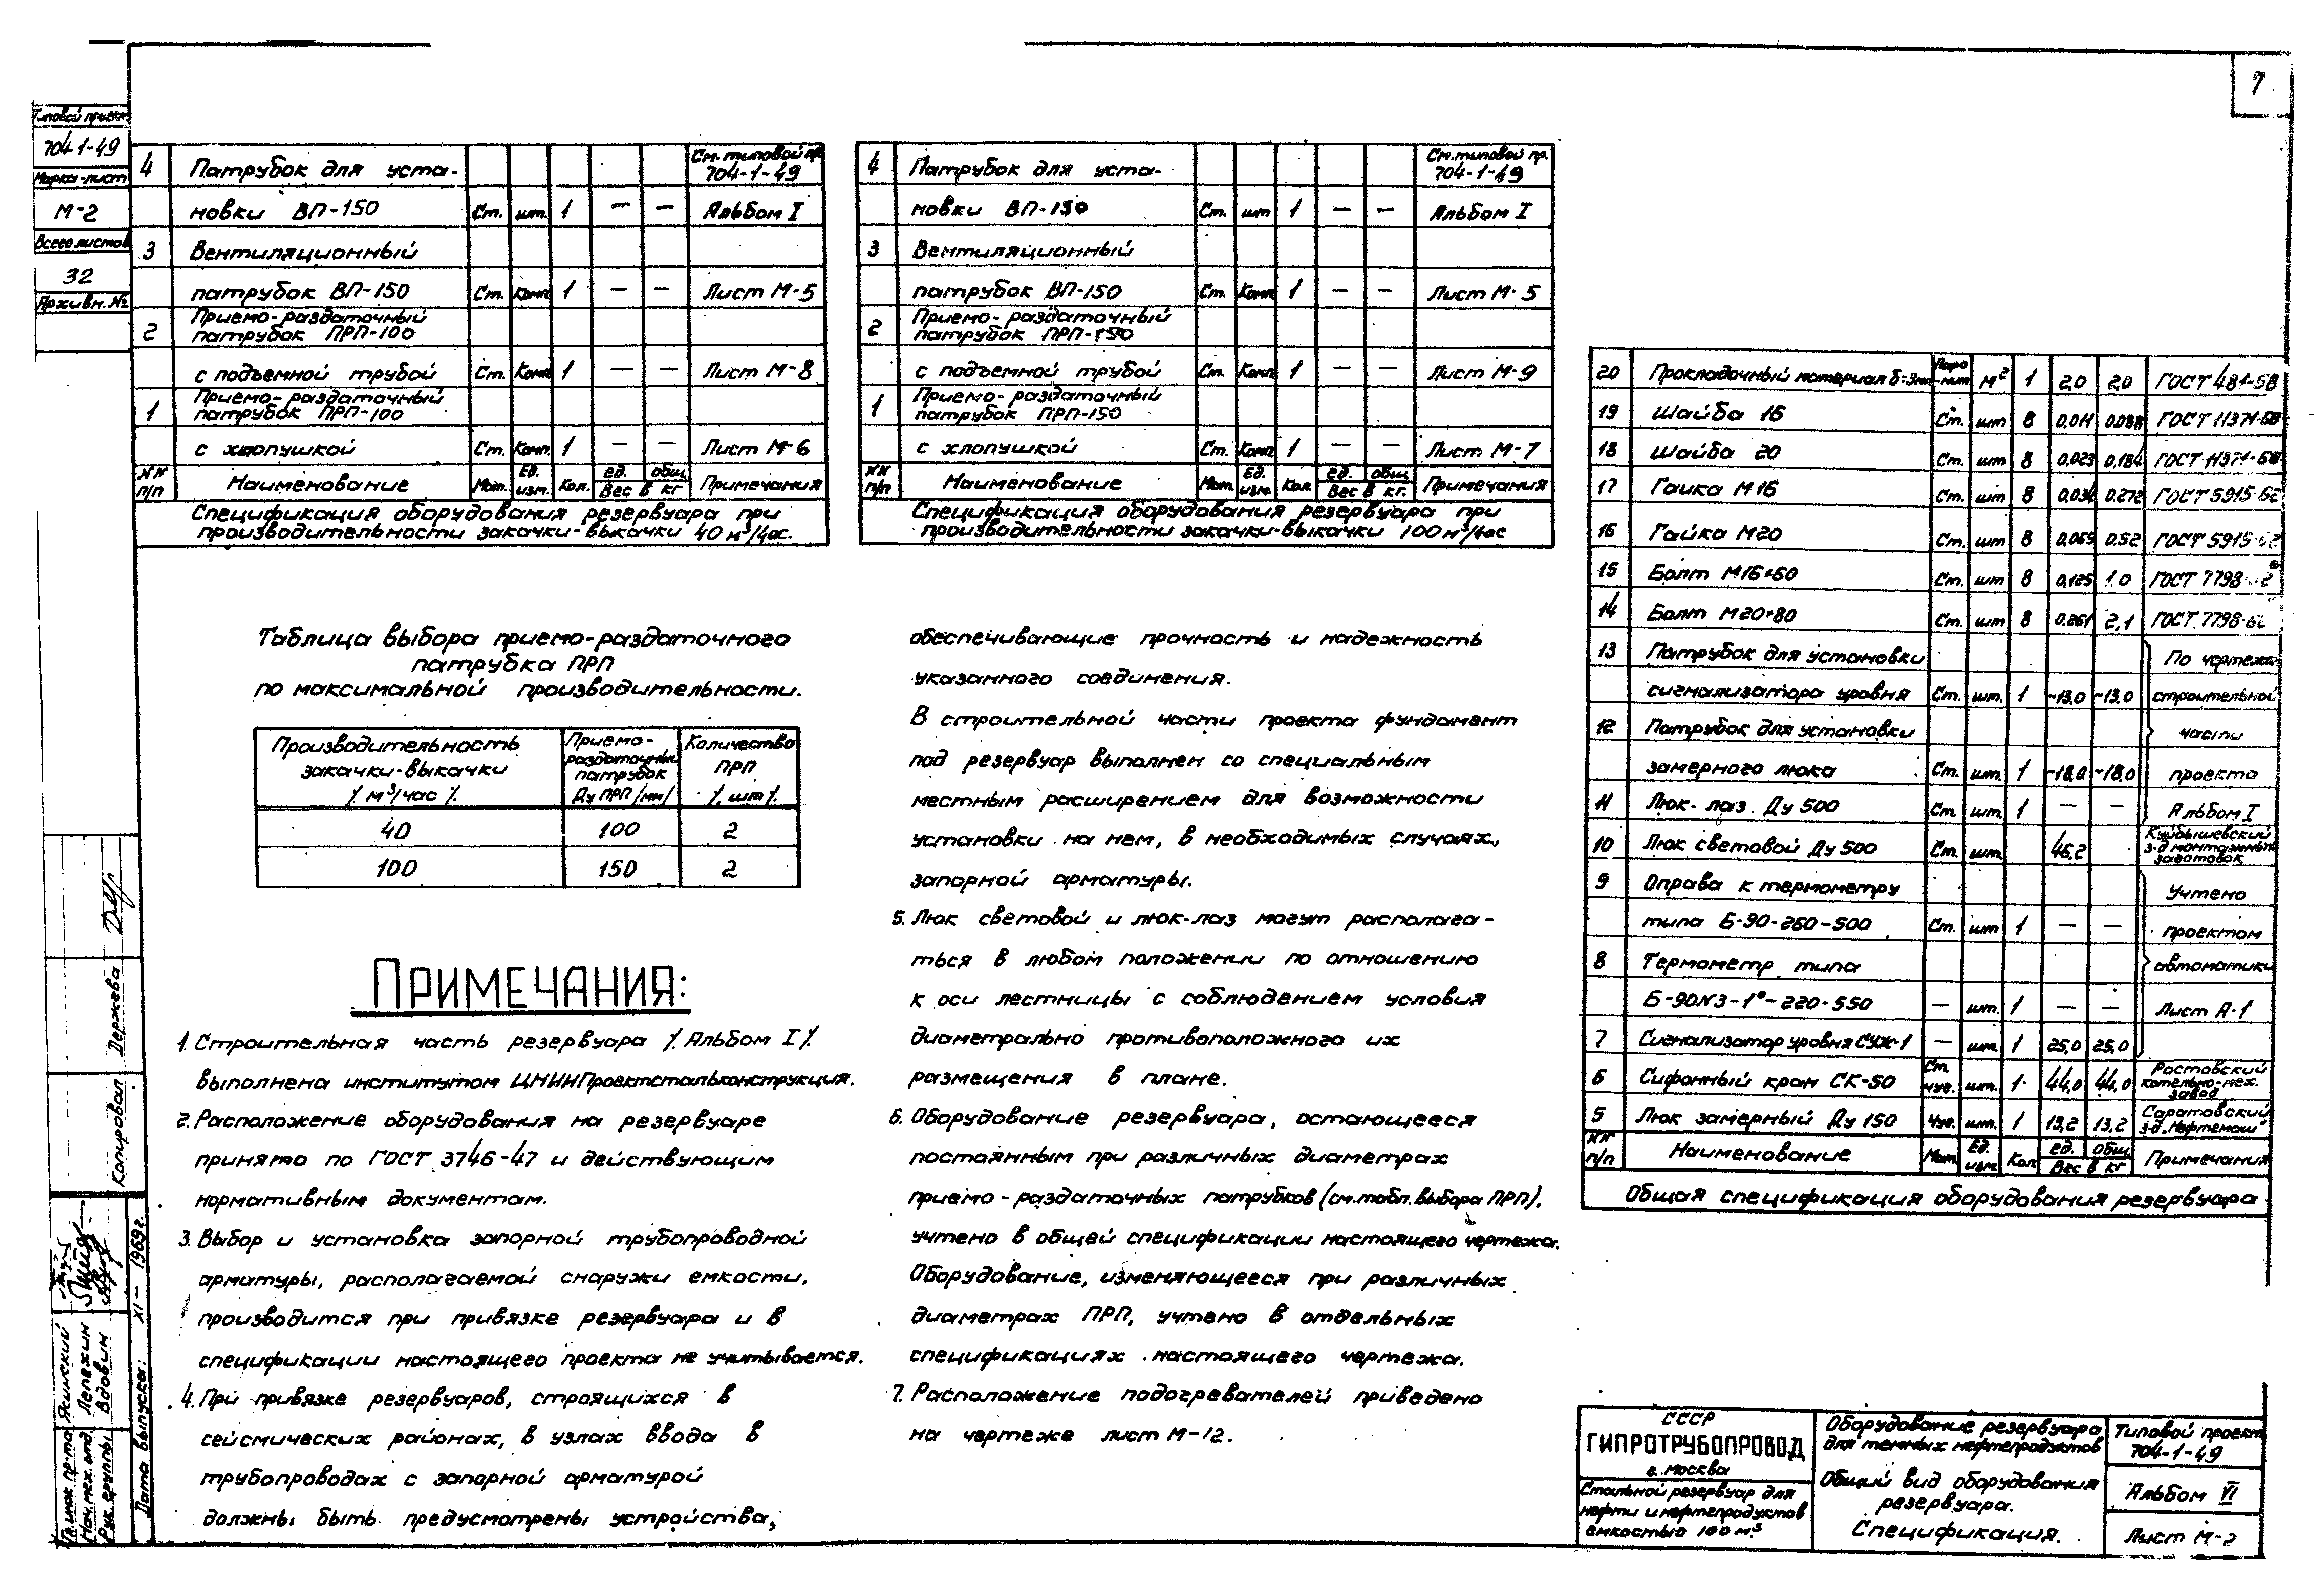 7
Типовой проект
704-1-49
Марка-лист
М-2
Всего листов
32
Архивн. №
4 Патрубок для уста- См. типовой пр. 704-1-49
новки ВП-150 Ст. шт. 1 — — Альбом I
3 Вентиляционный
патрубок ВП-150 Ст. Комп. 1 — — Лист М-5
2 Приемо-раздаточный
патрубок ПРП-100
с подъемной трубой Ст. Комп. 1 — — Лист М-8
1 Приемо-раздаточный
патрубок ПРП-100
с хлопушкой Ст. Комп. 1 — — Лист М-6
NN п/п Наименование Мат. Ед. изм. Кол. ед. общ. Вес в кг Примечания
Спецификация оборудования резервуара при
производительности закачки-выкачки 40 м³/час.
4 Патрубок для уста- См. типовой пр. 704-1-49
новки ВП-150 Ст. шт 1 — — Альбом I
3 Вентиляционный
патрубок ВП-150 Ст. Комп. 1 — — Лист М-5
2 Приемо-раздаточный
патрубок ПРП-150
с подъемной трубой Ст. Комп. 1 — — Лист М-9
1 Приемо-раздаточный
патрубок ПРП-150
с хлопушкой Ст. Комп. 1 — — Лист М-7
NN п/п Наименование Мат. Ед. изм. Кол. ед. общ. Вес в кг. Примечания
Спецификация оборудования резервуара при
производительности закачки-выкачки 100 м³/час
Таблица выбора приемо-раздаточного
патрубка ПРП
по максимальной производительности.
Производительность закачки-выкачки /м³/час/ Приемо-раздаточный патрубок Ду ПРП /мм/ Количество ПРП /шт/.
40 100 2
100 150 2
Примечания:
1. Строительная часть резервуара /Альбом I/
выполнена институтом ЦНИИПроектстальконструкция.
2. Расположение оборудования на резервуаре
принято по ГОСТ 3746-47 и действующим
нормативным документам.
3. Выбор и установка запорной трубопроводной
арматуры, располагаемой снаружи емкости,
производится при привязке резервуара и в
спецификации настоящего проекта не учитывается.
4. При привязке резервуаров, строящихся в
сейсмических районах, в узлах ввода в
трубопроводах с запорной арматурой
должны быть предусмотрены устройства,
обеспечивающие прочность и надежность
указанного соединения.
В строительной части проекта фундамент
под резервуар выполнен со специальным
местным расширением для возможности
установки на нем, в необходимых случаях,
запорной арматуры.
5. Люк световой и люк-лаз могут располага-
ться в любом положении по отношению
к оси лестницы с соблюдением условия
диаметрально противоположного их
размещения в плане.
6. Оборудование резервуара, остающееся
постоянным при различных диаметрах
приемо-раздаточных патрубков (см. табл. выбора ПРП),
учтено в общей спецификации настоящего чертежа.
Оборудование, изменяющееся при различных
диаметрах ПРП, учтено в отдельных
спецификациях настоящего чертежа.
7. Расположение подогревателей приведено
на чертеже лист М-12.
20 Прокладочный материал δ=3мм Паро-нит М² 1 2,0 2,0 ГОСТ 481-58
19 Шайба 16 Ст. шт 8 0,011 0,088 ГОСТ 11371-68
18 Шайба 20 Ст. шт 8 0,023 0,184 ГОСТ 11371-68
17 Гайка М16 Ст. шт 8 0,034 0,272 ГОСТ 5915-62
16 Гайка М20 Ст. шт 8 0,065 0,52 ГОСТ 5915-62
15 Болт М16×60 Ст. шт 8 0,125 1.0 ГОСТ 7798-62
14 Болт М20×80 Ст. шт 8 0,261 2,1 ГОСТ 7798-62
13 Патрубок для установки По чертежам
сигнализатора уровня Ст. шт. 1 ~13,0 ~13,0 строительной
12 Патрубок для установки части
замерного люка Ст. шт. 1 ~18,0 ~18,0 проекта
11 Люк-лаз Ду 500 Ст. шт. 1 — — Альбом I
10 Люк световой Ду 500 Ст. шт. 46,2 Куйбышевский з-д монтажных заготовок
9 Оправа к термометру Учтено
типа Б-90-260-500 Ст. шт 1 — — проектом
8 Термометр типа автоматики
Б-90N3-1°-220-550 — шт. 1 — — Лист А-1
7 Сигнализатор уровня СУЖ-1 — шт. 1 25,0 25,0
6 Сифонный кран СК-50 Ст. чуг. шт. 1 44,0 44,0 Ростовский котельно-мех. завод
5 Люк замерный Ду 150 Чуг. шт. 1 13,2 13,2 Саратовский з-д „Нефтемаш"
NN п/п Наименование Мат. Ед. изм. Кол. ед. общ. Вес в кг Примечания
Общая спецификация оборудования резервуара
СССР
ГИПРОТРУБОПРОВОД
г. Москва
Стальной резервуар для
нефти и нефтепродуктов
емкостью 100 м³
Оборудование резервуара
для темных нефтепродуктов
Общий вид оборудования
резервуара.
Спецификация.
Типовой проект
704-1-49
Альбом VI
Лист М-2
Копировал Держева
Гл. инж. пр-та Ясинский
Нач. мех. отд. Лепехин
Рук. группы Вдовин
Дата выпуска: XI — 1969г.